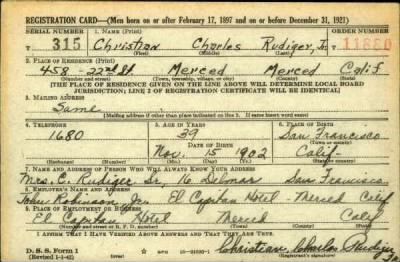 REGISTRATION CARD—(Men born on or after February 17, 1897 and on or before December 31, 1921)
SERIAL NUMBER 1. NAME (Print) ORDER NUMBER
315 Christian Charles Rudiger, Jr. 11880
(First) (Middle) (Last)
2. PLACE OF RESIDENCE (Print)
458 - 22nd St Merced Merced Calif
(Number and street) (Town, township, village, or city) (County) (State)
[THE PLACE OF RESIDENCE GIVEN ON THE LINE ABOVE WILL DETERMINE LOCAL BOARD
JURISDICTION; LINE 2 OF REGISTRATION CERTIFICATE WILL BE IDENTICAL]
3. MAILING ADDRESS
Same
[Mailing address if other than place indicated on line 2. If same insert word same]
4. TELEPHONE 5. AGE IN YEARS 6. PLACE OF BIRTH
1680 39 San Francisco
DATE OF BIRTH (Town or county)
Nov. 15 1902 Calif.
(Exchange) (Number) (Mo.) (Day) (Yr.) (State or country)
7. NAME AND ADDRESS OF PERSON WHO WILL ALWAYS KNOW YOUR ADDRESS
Mrs. C. Rudiger Sr. 16 Delmar San Francisco
8. EMPLOYER'S NAME AND ADDRESS
John Robinson Jr. El Capitan Hotel Merced Calif
9. PLACE OF EMPLOYMENT OR BUSINESS
El Capitan Hotel Merced Calif
(Number and street or R. F. D. number) (Town) (County) (State)
I AFFIRM THAT I HAVE VERIFIED ABOVE ANSWERS AND THAT THEY ARE TRUE.
D. S. S. Form 1
(Revised 1-1-42) Christian Charles Rudiger Jr.